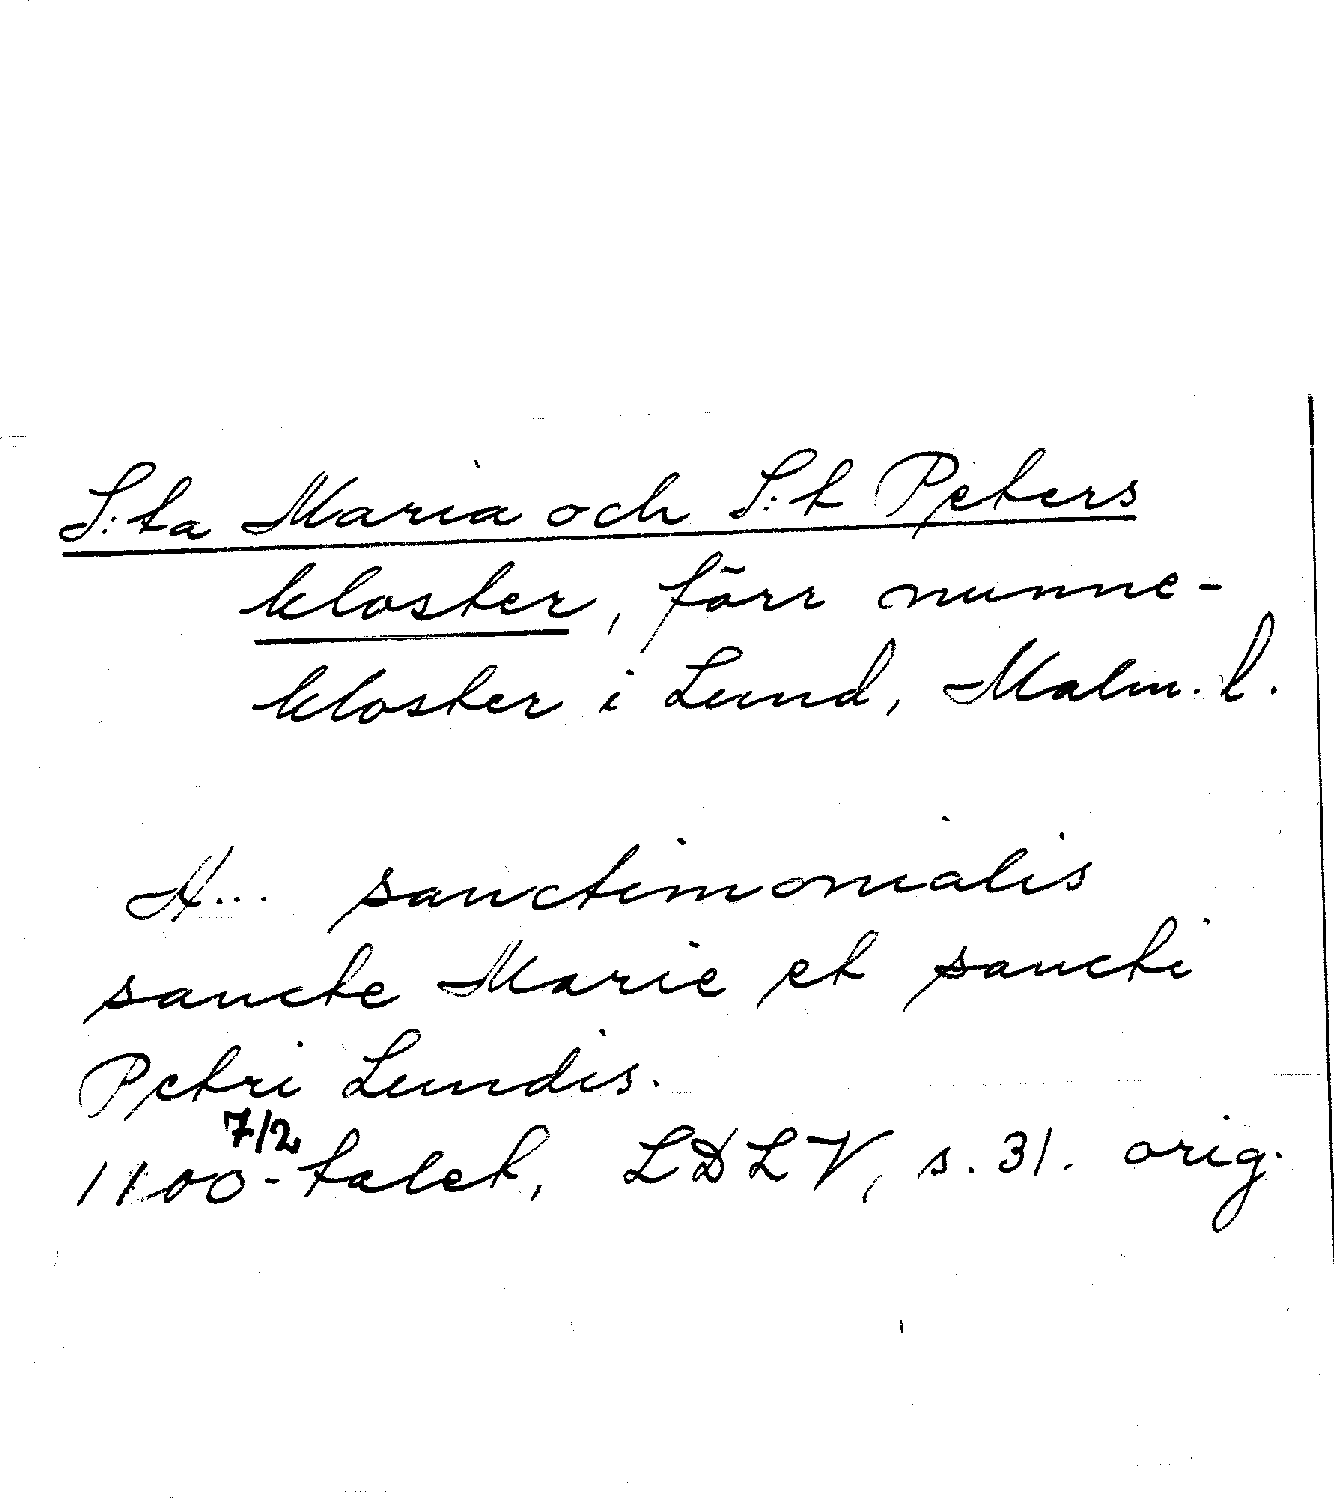 S:ta Maria och S:t Peters
kloster, förr nunne-
kloster i Lund, Malm. l.
H... sanctimonialis
sancte Marie et sancti
Petri Lundis.
7/2
1100-talet, LDLV, s. 31. orig.